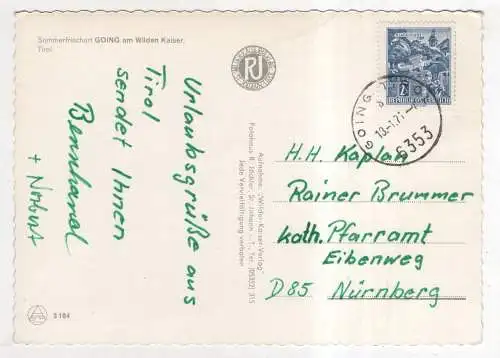 Sommerfrischort GOING am Wilden Kaiser,
Tirol
Urlaubsgrüße aus
Tirol
sendet Ihnen
Bernhard
+ Norbert
RJ
Aufnahme: "Wilder-Kaiser-Verlag"
Fotohaus R. Jöchler, St. Johann i. Tir., Tel. (05352) 315
Jede Vervielfältigung verboten
3184
2S
REPUBLIK ÖSTERREICH
GOING
6353
H.H. Kaplan
Rainer Brummer
kath. Pfarramt
Eibenweg
D85 Nürnberg